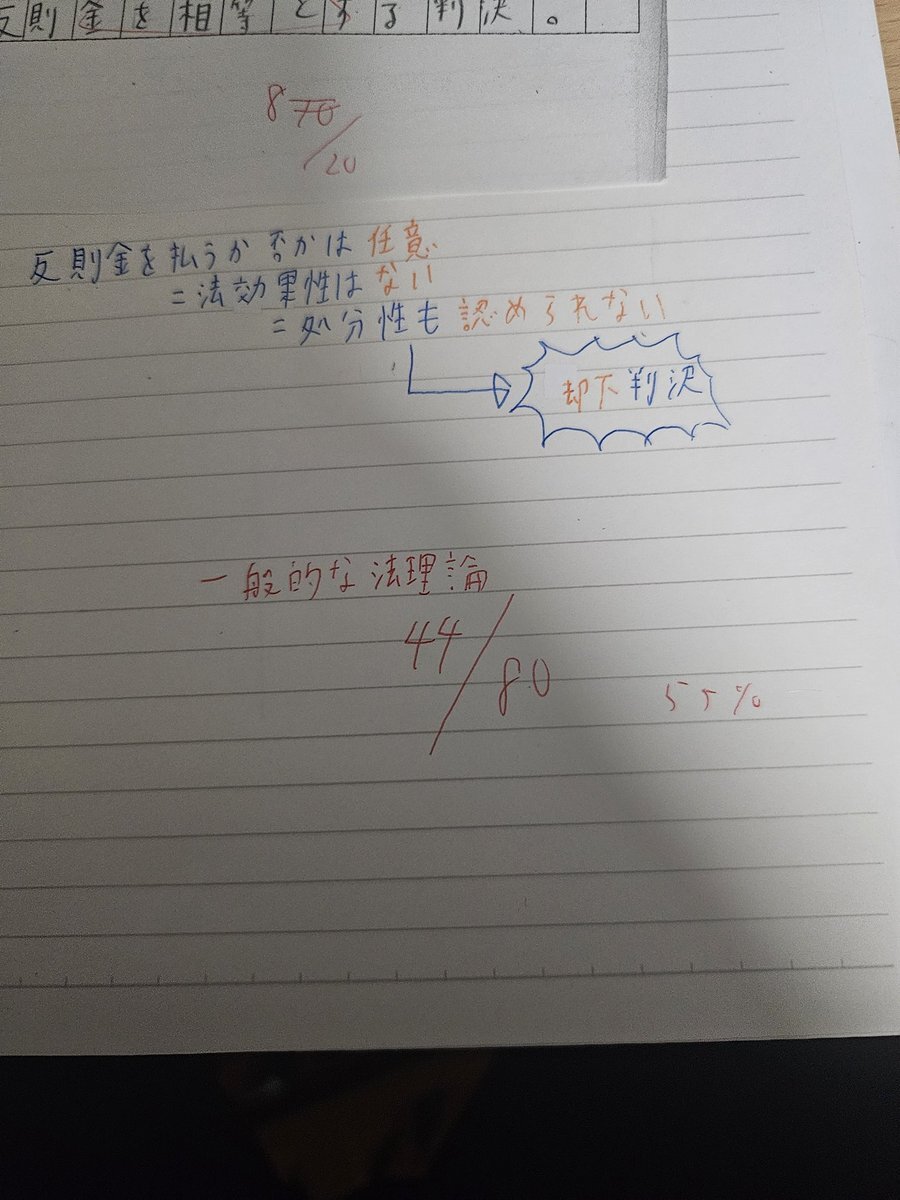 反則金を相等とする判決。
8 70/20
反則金を払うか否かは任意
=法効果性はない
=処分性も認められない
却下判決
一般的な法理論
44/80
55%